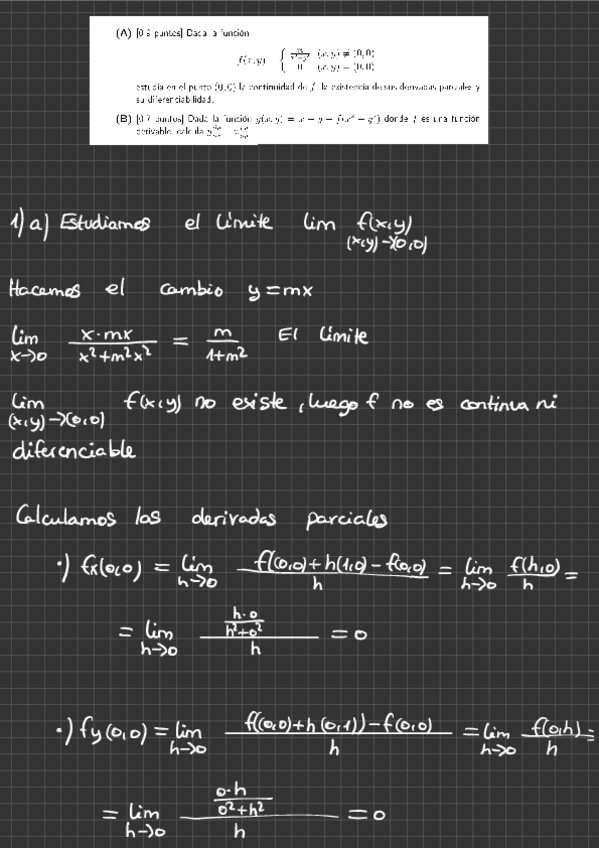 (A) [0.9 puntos] Dada la función
f(x, y) = { xy/(x²+y²) (x, y) ≠ (0, 0)
0 (x, y) = (0, 0)
estudia en el punto (0, 0) la continuidad de f, la existencia de sus derivadas parciales y
su diferenciabilidad.
(B) [0.7 puntos] Dada la función donde f es una función
derivable, calcula
1) a) Estudiamos el límite lim f(x,y)
(x,y)→(0,0)
Hacemos el cambio y=mx
lim x→0 x·mx/(x²+m²x²) = m/(1+m²) El límite
lim (x,y)→(0,0) f(x,y) no existe, luego f no es continua ni
diferenciable
Calculamos las derivadas parciales
·) fx(0,0) = lim h→0 f((0,0)+h(1,0)-f(0,0)/h = lim h→0 f(h,0)/h =
= lim h→0 (h·0/(h²+0²))/h = 0
·) fy(0,0) = lim h→0 f((0,0)+h(0,1))-f(0,0)/h = lim h→0 f(0,h)/h =
= lim h→0 (0·h/(0²+h²))/h = 0